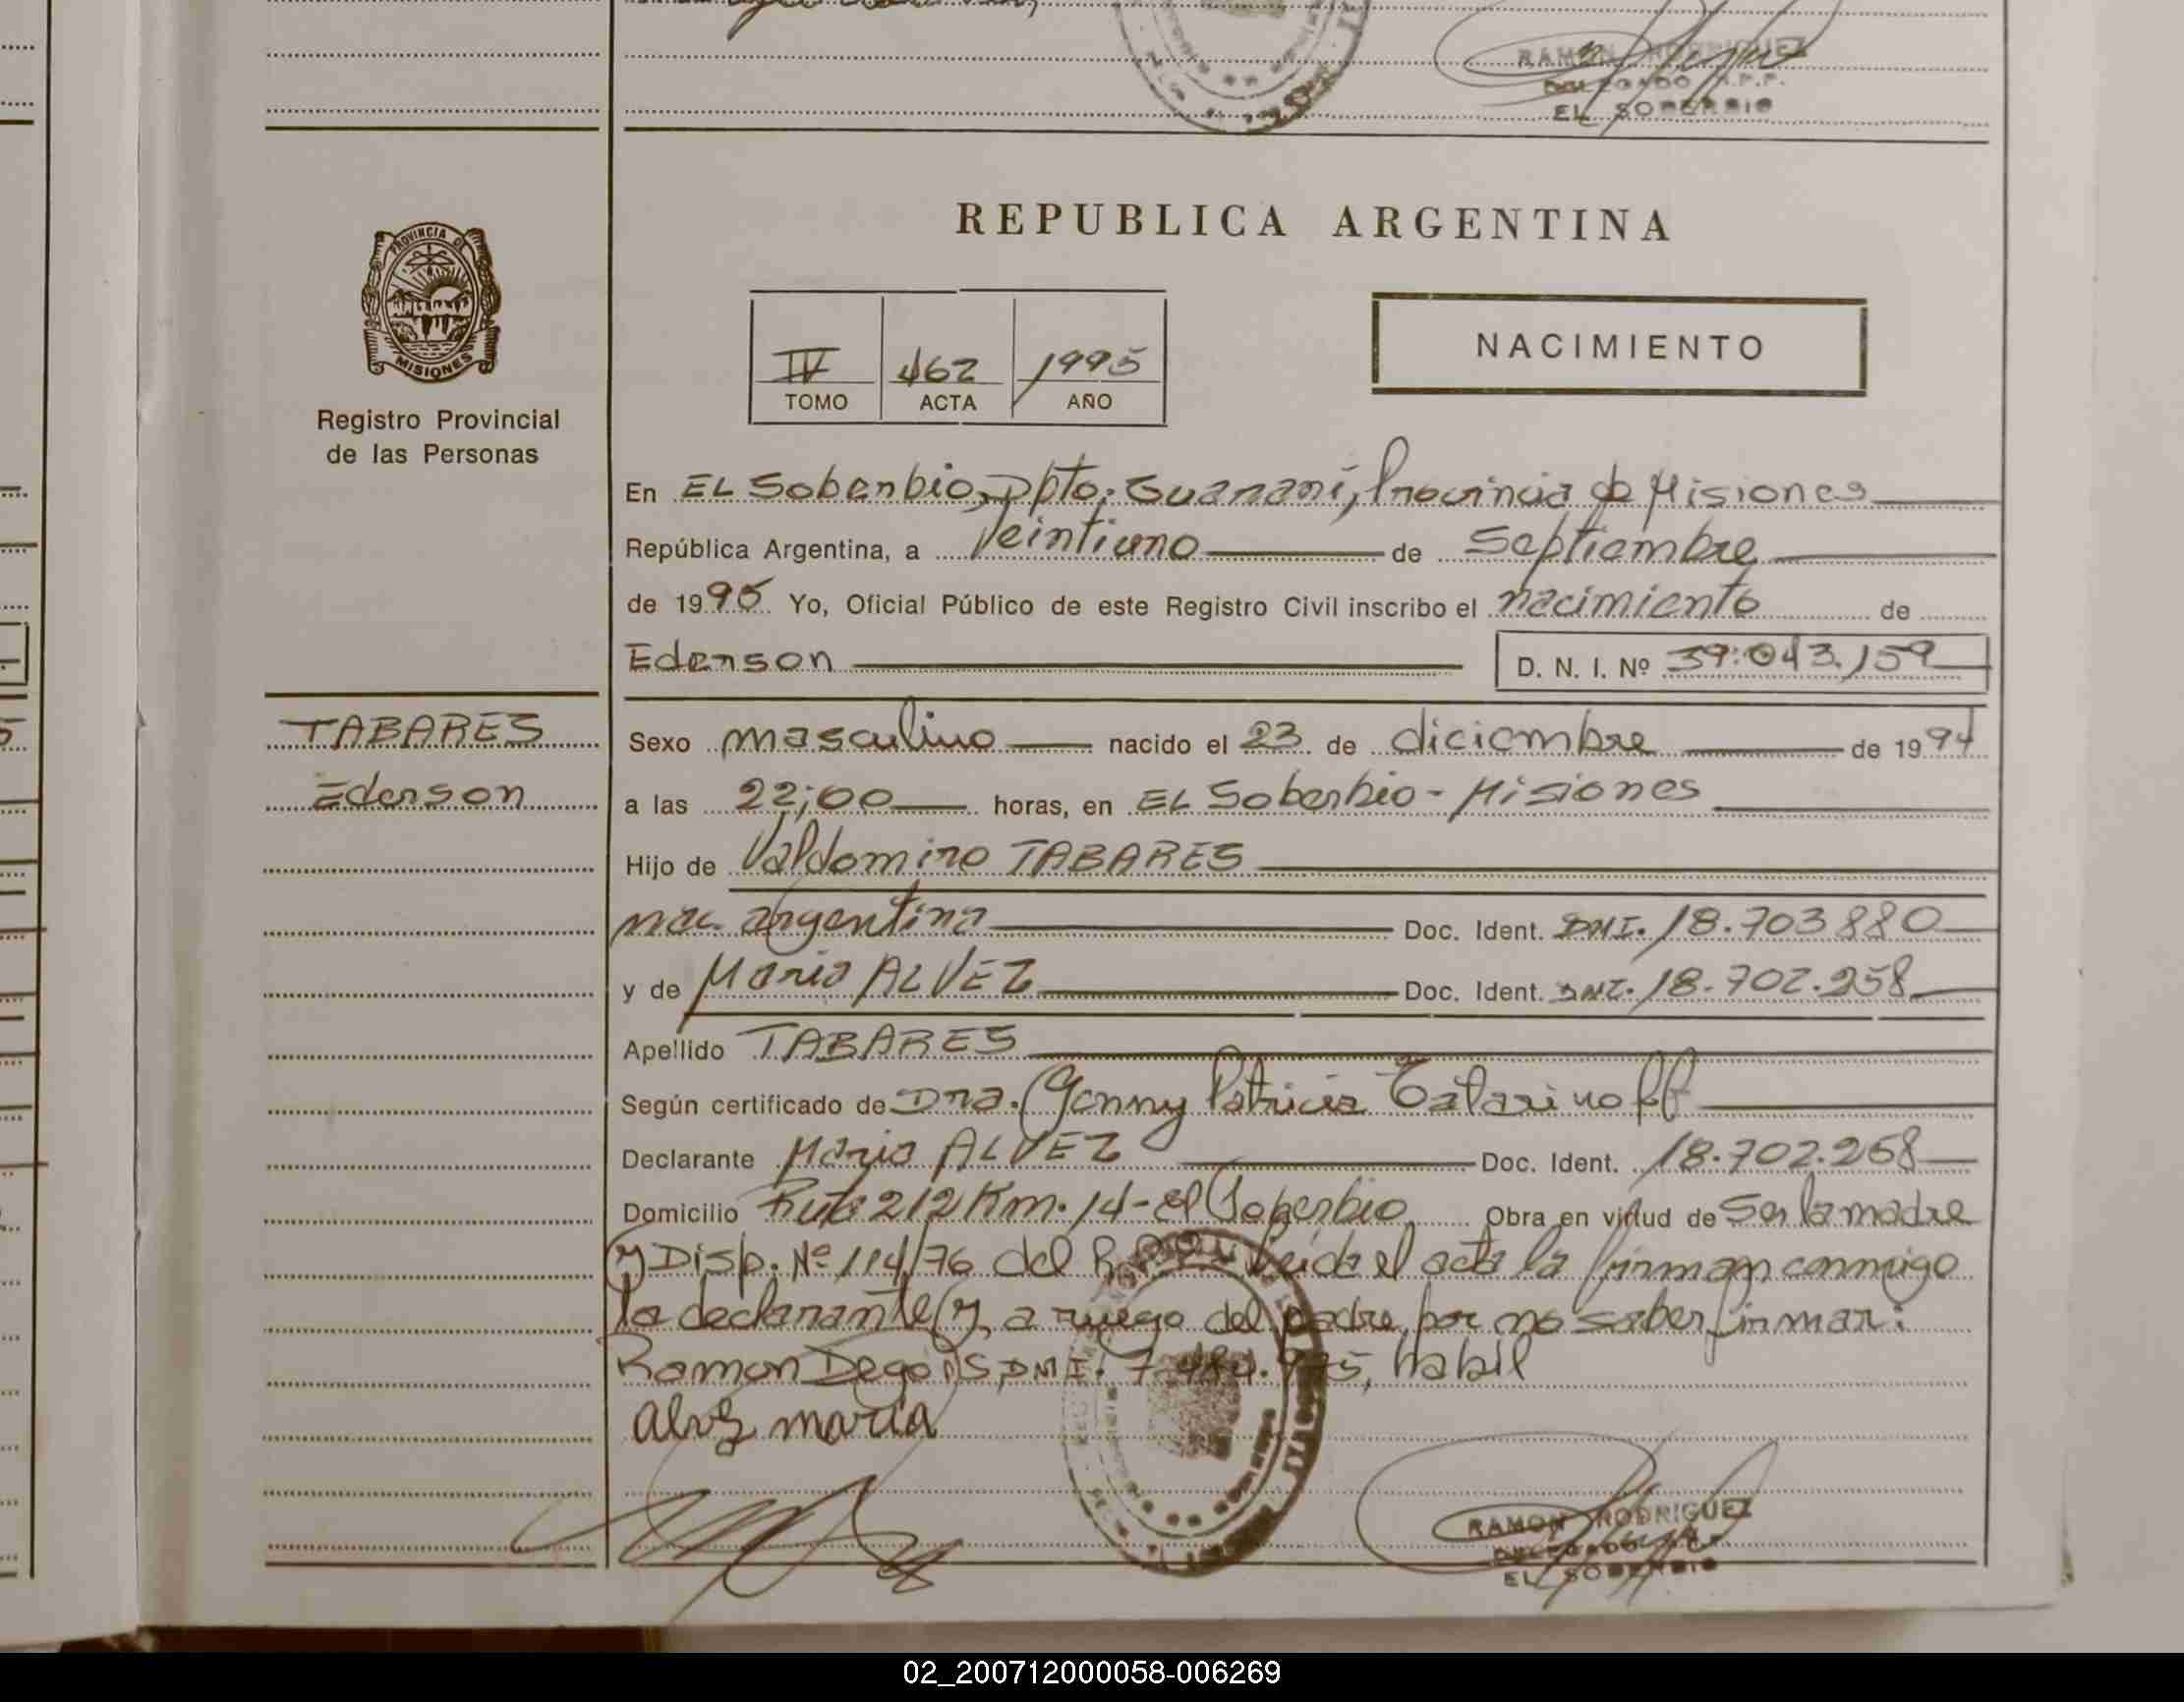 RAMON RODRIGUEZ
DELEGADO R.P.P.
EL SOBERBIO
PROVINCIA DE
MISIONES
Registro Provincial
de las Personas
REPUBLICA ARGENTINA
IV 462 1995
TOMO ACTA AÑO
NACIMIENTO
En EL Soberbio, Dpto. Guaraní, Provincia de Misiones
República Argentina, a Veintiuno de Septiembre
de 1995 Yo, Oficial Público de este Registro Civil inscribo el nacimiento de
Ederson D. N. I. Nº 39.043.159
TABARES
Ederson
Sexo masculino nacido el 23 de diciembre de 1994
a las 22,00 horas, en EL Soberbio - Misiones
Hijo de Valdomiro TABARES
nac. argentina Doc. Ident. DNI. 18.703.880
y de Maria ALVEZ Doc. Ident. DNI. 18.702.258
Apellido TABARES
Según certificado de Dra. Genny Patricia
Declarante Maria ALVEZ Doc. Ident. 18.702.258
Domicilio Ruta 212 Km. 14 - El Soberbio Obra en virtud de Ser la madre
y Disp. Nº 114/76 del R.P.P. Leida el acta la firman conmigo
la declarante y a ruego del padre por no saber firmar:
Ramon DNI. habil
Alvez maria
RAMON RODRIGUEZ
DELEGADO
EL SOBERBIO
02_200712000058-006269